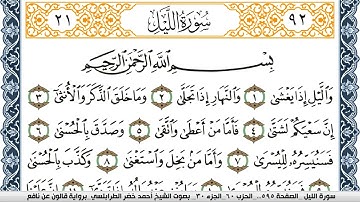 ٩٢ سُورَةُ اللَّيْلِ ٢١
بِسْمِ اللَّهِ الرَّحْمَٰنِ الرَّحِيمِ
وَاللَّيْلِ إِذَا يَغْشَىٰ ١ وَالنَّهَارِ إِذَا تَجَلَّىٰ ٢ وَمَا خَلَقَ الذَّكَرَ وَالْأُنثَىٰ ٣
إِنَّ سَعْيَكُمْ لَشَتَّىٰ ٤ فَأَمَّا مَنْ أَعْطَىٰ وَاتَّقَىٰ ٥ وَصَدَّقَ بِالْحُسْنَىٰ ٦
فَسَنُيَسِّرُهُ لِلْيُسْرَىٰ ٧ وَأَمَّا مَنْ بَخِلَ وَاسْتَغْنَىٰ ٨ وَكَذَّبَ بِالْحُسْنَىٰ
سورة الليل الصفحة ٥٩٥.. الحزب ٦٠ الجزء ٣٠ بصوت الشيخ أحمد خضر الطرابلسي برواية قالون عن نافع